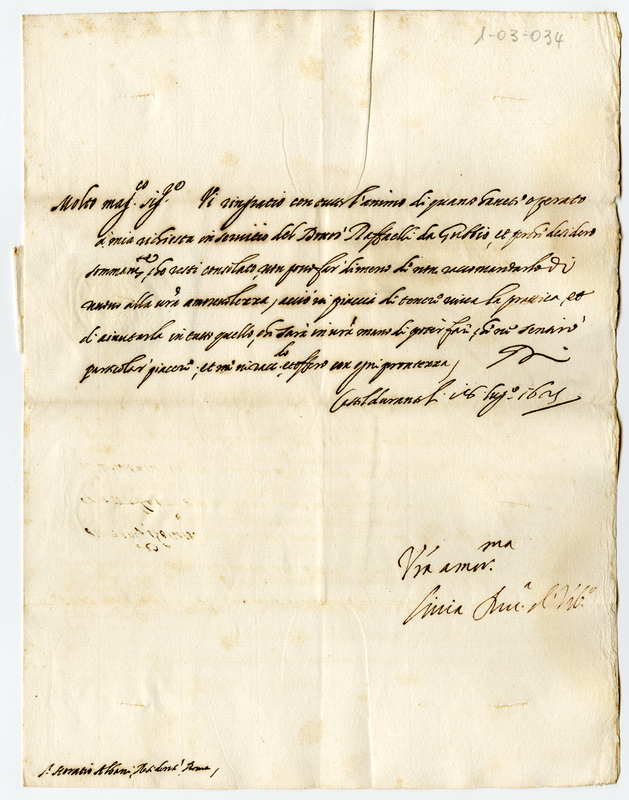 1-03-034
Molto mag.co sig.re Vi ringratio con tutto l'animo di quanto havete operato
a mia richiesta in servitio del Dottor Raffaelli da Gubbio, et perche desidero
sommam.te che resti consolato non posso far di meno di non raccomandarlo di
nuovo alla vra amorevolezza, acciò vi piaccia di tener viva la pratica, et
di aiutarla in tutto quello che sarà in vra mano di poter fare, che ne sentirò
particolar piacere, et me vi racc.do et offero con ogni prontezza,
Casteldurante li 16 lug.o 1621
Vra amor.ma
Livia Duc.a d'Urb.o
S.r Horatio Albani, Resident Roma,